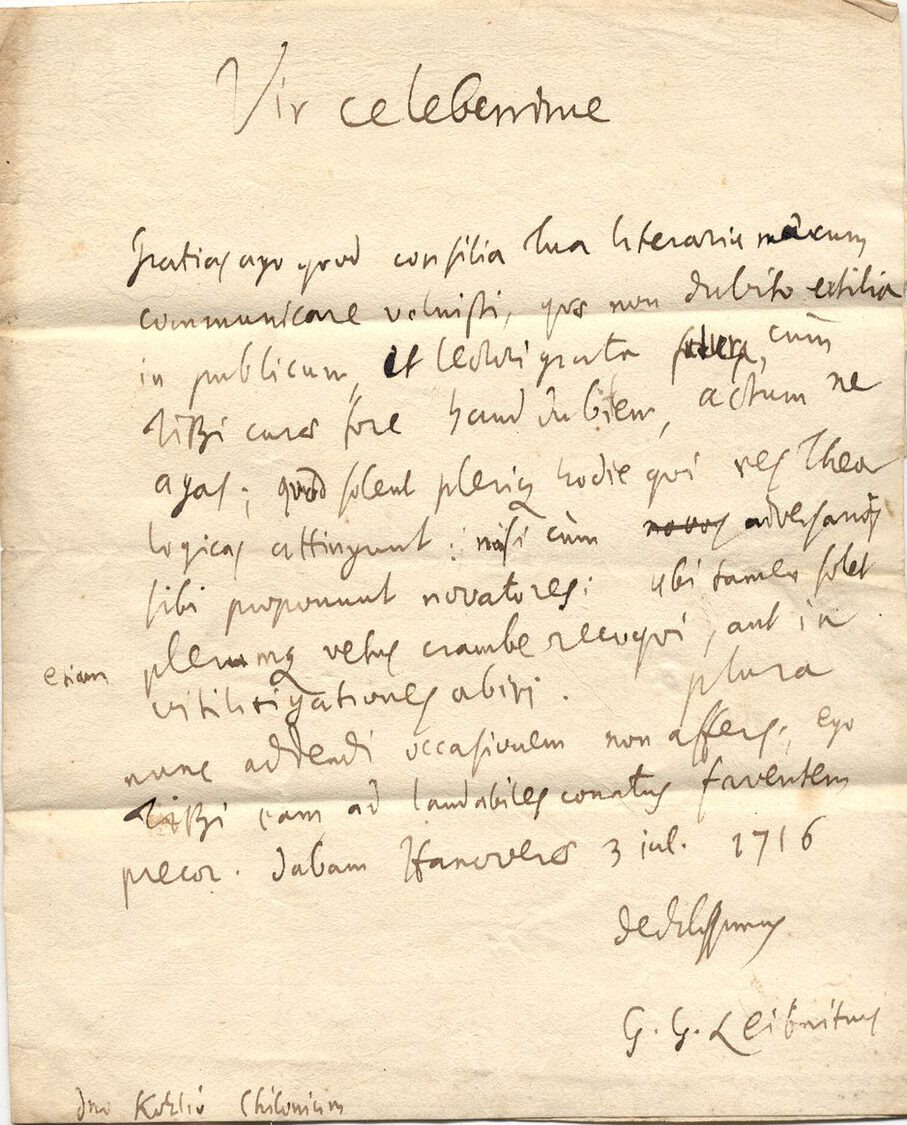 Vir celeberrime
Gratias ago quod consilia tua literaria mecum
communicare voluisti, quae non dubito utilia
in publicum, et lectori grata fore, cum
Tibi curae fore haud dubitem, actum ne
agas; quod solent pleriq hodie qui res theo
logicas attingunt: nisi cùm novos adversarios
sibi proponunt novatores: ubi tamen solet
etiam plerumq vetus crambe recoqui, aut in
vitilitigationes abiri. plura
nunc addendi occasionem non affers, ego
Tibi eam ad laudabiles conatus faventem
precor. dabam Hanoverae 3 jul. 1716
deditissimus
G. G. Leibnitius
dno Kohlio Chilonium